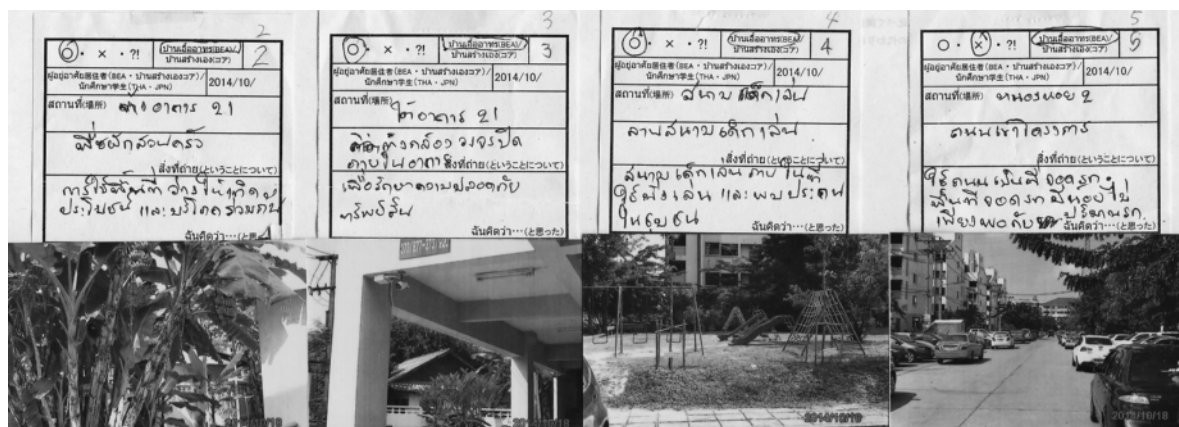 2
○・ × ・?!
บ้านเอื้ออาทร(BEA)/
บ้านสร้างเอง(コア)
2
ผู้อยู่อาศัย居住者(BEA・บ้านสร้างเองコア)/
นักศึกษา学生(THA・JPN)
2014/10/
สถานที่(場所) ข้างอาคาร 21
พืชผักสวนครัว
สิ่งที่ถ่าย(ということについて)
การใช้พื้นที่ว่างให้เกิด
ประโยชน์ และบริโภคร่วมกัน
ฉันคิดว่า…(と思
3
○・ × ・?!
บ้านเอื้ออาทร(BEA)/
บ้านสร้างเอง(コア)
3
ผู้อยู่อาศัย居住者(BEA・บ้านสร้างเองコア)/
นักศึกษา学生(THA・JPN)
2014/10/
สถานที่(場所)
ใต้อาคาร 21
กล้องวงจรปิด
ภายในอาคาร
สิ่งที่ถ่าย(ということについて)
เพื่อรักษาความปลอดภัย
ทรัพย์สิน
ฉันคิดว่า…(と思った)
4
○・ × ・?!
บ้านเอื้ออาทร(BEA)/
บ้านสร้างเอง(コア)
4
ผู้อยู่อาศัย居住者(BEA・บ้านสร้างเองコア)/
นักศึกษา学生(THA・JPN)
2014/10/
สถานที่(場所) สนามเด็กเล่น
ลานสนามเด็กเล่น
สิ่งที่ถ่าย(ということについて)
สนามเด็กเล่นภายใน
ใช้ เล่น และพบประคน
ในชุมชน
ฉันคิดว่า…(と思った)
5
○・ × ・?!
บ้านเอื้ออาทร(BEA)/
บ้านสร้างเอง(コア)
5
ผู้อยู่อาศัย居住者(BEA・บ้านสร้างเองコア)/
นักศึกษา学生(THA・JPN)
2014/10/
สถานที่(場所) หนองหอย 2
ถนนเข้าโครงการ
สิ่งที่ถ่าย(ということについて)
ใช้ถนนเป็นที่จอดรถ
พื้นที่จอดรถมีน้อยไม่
เพียงพอกับ ปริมาณรถ
ฉันคิดว่า…(と思った)
2014/10/18
2014/10/18
2014/10/18